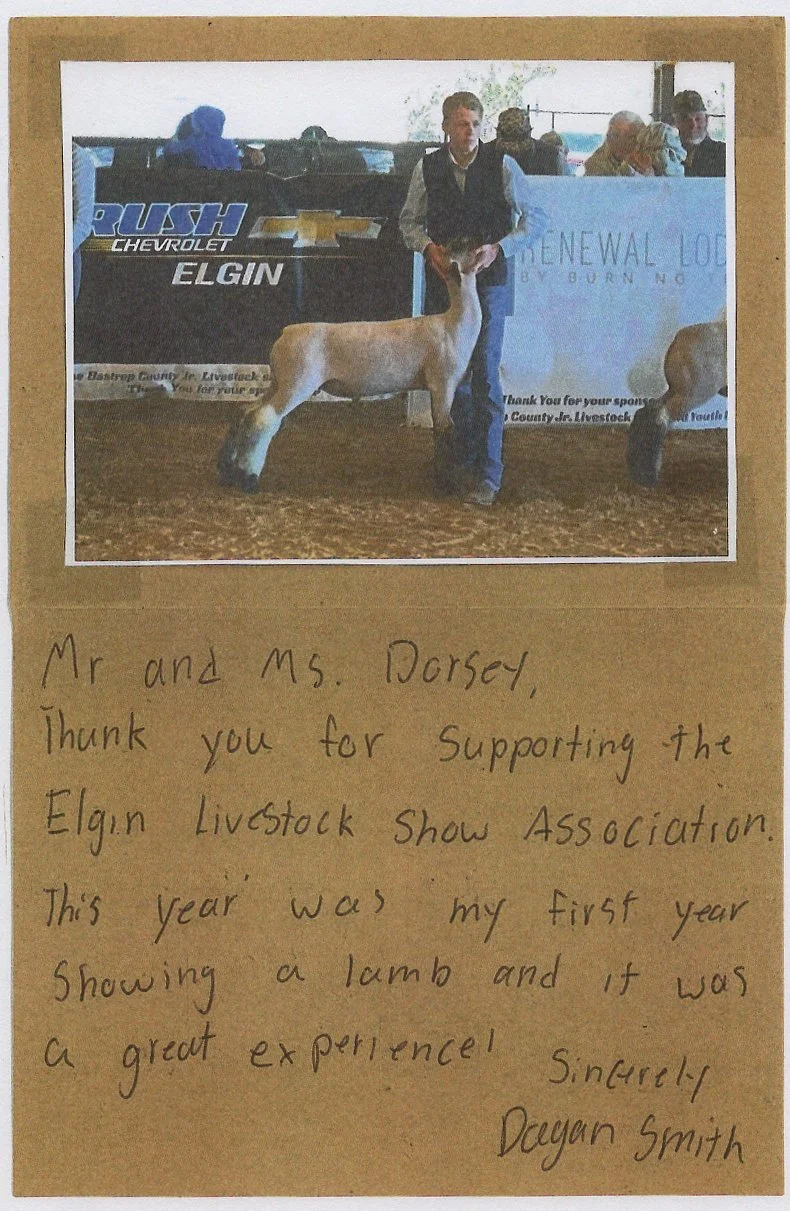 RUSH
CHEVROLET
ELGIN
RENEWAL LOD
BY BURN NO
County Jr. Livestock
Thank You for your
Thank You for your spons
County Jr. Livestock
Youth
Mr and Ms. Dorsey,
Thank you for supporting the
Elgin Livestock Show Association.
This year was my first year
Showing a lamb and it was
a great experience!
Sincerely
Dagan Smith